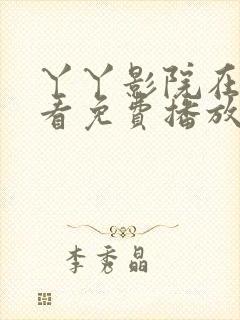 丫丫影院在
看免費播放
李秀晶